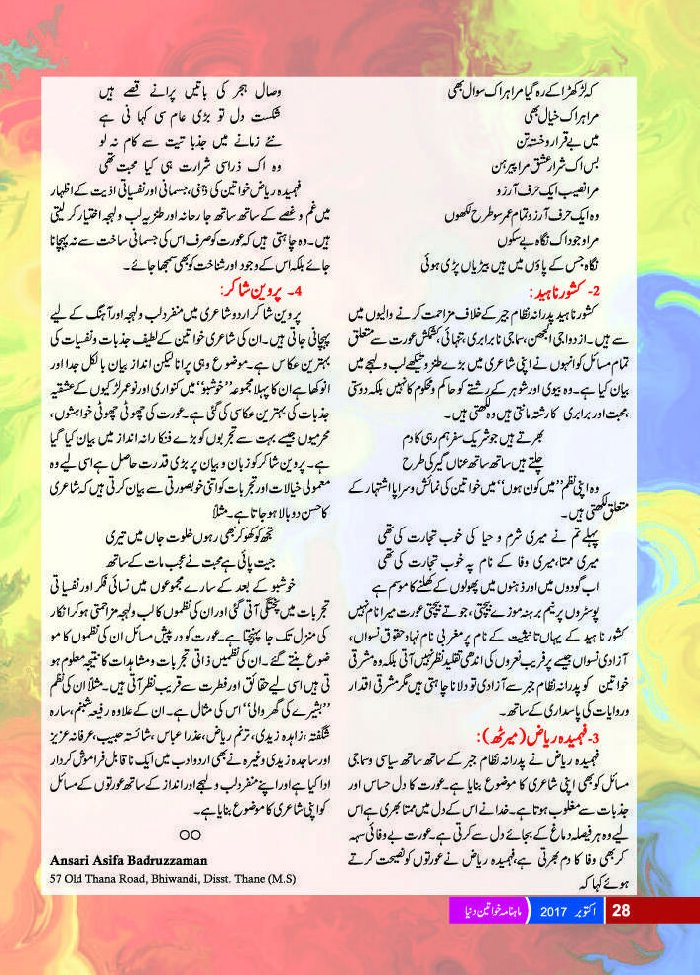 کہ لڑکھڑا کے رہ گیا مرا ہر اک سوال بھی
مرا ہر اک خیال بھی
میں بے قرار و خستہ تن
بس اک شرار عشق مرا پیرہن
مرا نصیب ایک حرف آرزو
وہ ایک حرف آرزو تمام عمر سو طرح لکھوں
مرا وجود اک نگاہ بے سکوں
نگاہ جس کے پاؤں میں ہیں بیڑیاں پڑی ہوئی
2- کشور ناہید:
کشور ناہید پدرانہ نظام جبر کے خلاف مزاحمت کرنے والیوں میں
سے ہیں۔ ازدواجی الجھن، سماجی نابرابری، تنہائی، کشمکش عورت سے متعلق
تمام مسائل کو انہوں نے اپنی شاعری میں بڑے طنز و تیکھے لب و لہجے میں
بیان کیا ہے۔ وہ بیوی اور شوہر کے رشتے کو حاکم و محکوم کا نہیں بلکہ دوستی
،محبت اور برابری کا رشتہ مانتی ہیں وہ لکھتی ہیں۔
بھرتے ہیں جو شریک سفر ہم رہی کا دم
چلتے ہیں ساتھ ساتھ عناں گیر کی طرح
وہ اپنی نظم ”میں کون ہوں“ میں خواتین کی نمائش و سراپا اشتہار کے
متعلق لکھتی ہیں۔
پہلے تم نے میری شرم و حیا کی خوب تجارت کی تھی
میری ممتا، میری وفا کے نام پہ خوب تجارت کی تھی
اب گودوں میں اور ذہنوں میں پھولوں کے کھلنے کا موسم ہے
پوسٹروں پر نیم برہنہ موزے بیچتی، جوتے بیچتی عورت میرا نام نہیں
کشور ناہید کے یہاں تانیثیت کے نام پر مغربی نام نہاد حقوق نسواں،
آزادی نسواں جیسے پر فریب نعروں کی اندھی تقلید نظر نہیں آتی بلکہ وہ مشرقی
خواتین کو پدرانہ نظام جبر سے آزادی تو دلانا چاہتی ہیں مگر مشرقی اقدار
و روایات کی پاسداری کے ساتھ۔
3- فہمیدہ ریاض (میرٹھ):
فہمیدہ ریاض نے پدرانہ نظام جبر کے ساتھ ساتھ سیاسی و سماجی
مسائل کو بھی اپنی شاعری کا موضوع بنایا ہے۔ عورت کا دل حساس اور
جذبات سے مغلوب ہوتا ہے۔ خدا نے اس کے دل میں ممتا بھری ہے اس
لیے وہ ہر فیصلہ دماغ کے بجائے دل سے کرتی ہے۔ عورت بے وفائی سہہ
کر بھی وفا کا دم بھرتی ہے، فہمیدہ ریاض نے عورتوں کو نصیحت کرتے
ہوئے کہا کہ
وصال ہجر کی باتیں پرانے قصے ہیں
شکست دل تو بڑی عام سی کہانی ہے
نئے زمانے میں جذباتیت سے کام نہ لو
وہ اک ذرا سی شرارت ہی کیا محبت تھی
فہمیدہ ریاض خواتین کی ذہنی، جسمانی اور نفسیاتی اذیت کے اظہار
میں غم و غصے کے ساتھ ساتھ جارحانہ اور طنزیہ لب و لہجہ اختیار کر لیتی
ہیں۔ وہ چاہتی ہیں کہ عورت کو صرف اس کی جسمانی ساخت سے نہ پہچانا
جائے بلکہ اس کے وجود اور شناخت کو بھی سمجھا جائے۔
4۔ پروین شاکر:
پروین شاکر اردو شاعری میں منفرد لب و لہجہ اور آہنگ کے لیے
پہچانی جاتی ہیں۔ ان کی شاعری خواتین کے لطیف جذبات و نفسیات کی
بہترین عکاس ہے۔ موضوع وہی پرانا لیکن انداز بیان بالکل جدا اور
انوکھا ہے ان کا پہلا مجموعہ ”خوشبو“ میں کنواری اور نوعمر لڑکیوں کے عشقیہ
جذبات کی بہترین عکاسی کی گئی ہے۔ عورت کی چھوٹی چھوٹی خواہشوں،
محرمیوں جیسے بہت سے تجربوں کو بڑے فنکارانہ انداز میں بیان کیا گیا
ہے۔ پروین شاکر کو زبان و بیان پر بڑی قدرت حاصل ہے اسی لیے وہ
معمولی خیالات اور تجربات کو اتنی خوبصورتی سے بیان کرتی ہیں کہ شاعری
کا حسن دوبالا ہو جاتا ہے۔ مثلاً
تجھ کو کھو کر بھی رہوں خلوت جاں میں تیری
جیت پائی ہے محبت نے عجب مات کے ساتھ
خوشبو کے بعد کے سارے مجموعوں میں نسائی فکر اور نفسیاتی
تجربات میں پختگی آتی گئی اور ان کی نظموں کا لب و لہجہ مزاحمتی ہو کر انکار
کی منزل تک جا پہنچتا ہے۔ عورت کو درپیش مسائل ان کی نظموں کا مو
ضوع بنتے گئے۔ ان کی نظمیں ذاتی تجربات و مشاہدات کا نتیجہ معلوم ہو
تی ہیں اسی لیے حقائق اور فطرت سے قریب نظر آتی ہیں۔ مثلاً ان کی نظم
”بشیرے کی گھر والی“ اس کی مثال ہے۔ ان کے علاوہ رفیعہ شبنم، سارہ
شگفتہ، زاہدہ زیدی، ترنم ریاض، عذرا عباس، شائستہ حبیب، عرفانہ عزیز
اور ساجدہ زیدی وغیرہ نے بھی اردو ادب میں ایک ناقابل فراموش کردار
ادا کیا ہے اور اپنے منفرد لب و لہجے اور انداز کے ساتھ عورتوں کے مسائل
کو اپنی شاعری کا موضوع بنایا ہے۔
Ansari Asifa Badruzzaman
57 Old Thana Road, Bhiwandi, Disst. Thane (M.S)
28 اکتوبر 2017 ماہنامہ خواتین دنیا